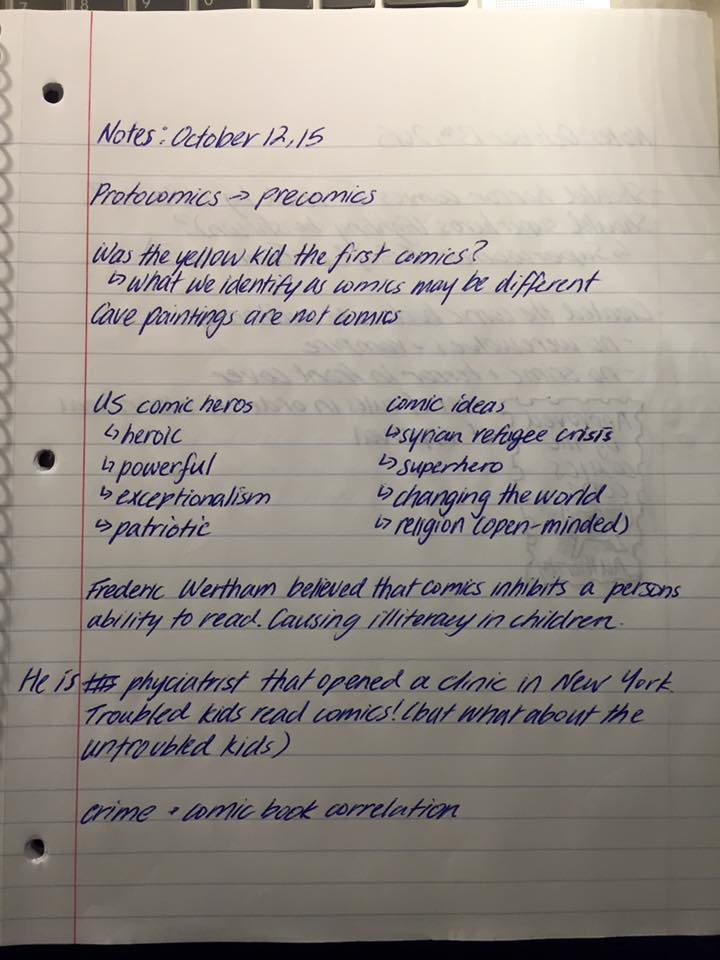 Notes: October 12, 15
Protocomics → precomics
Was the yellow kid the first comics?
↳ what we identify as comics may be different
Cave paintings are not comics
US comic heros
↳ heroic
↳ powerful
↳ exceptionalism
↳ patriotic
comic ideas
↳ syrian refugee crisis
↳ superhero
↳ changing the world
↳ religion (open-minded)
Frederic Wertham believed that comics inhibits a persons
ability to read. Causing illiteracy in children.
He is phyciatrist that opened a clinic in New York.
Troubled kids read comics! (but what about the
untroubled kids)
crime + comic book correlation